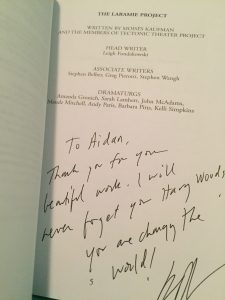 THE LARAMIE PROJECT
WRITTEN BY MOISÉS KAUFMAN
AND THE MEMBERS OF TECTONIC THEATER PROJECT
HEAD WRITER
Leigh Fondakowski
ASSOCIATE WRITERS
Stephen Belber, Greg Pierotti, Stephen Wangh
DRAMATURGS
Amanda Gronich, Sarah Lambert, John McAdams,
Maude Mitchell, Andy Paris, Barbara Pitts, Kelli Simpkins
To Aidan,
Thank you for your
beatiful work. I will
never forget you Harry Woods
You are changing the
world!
5